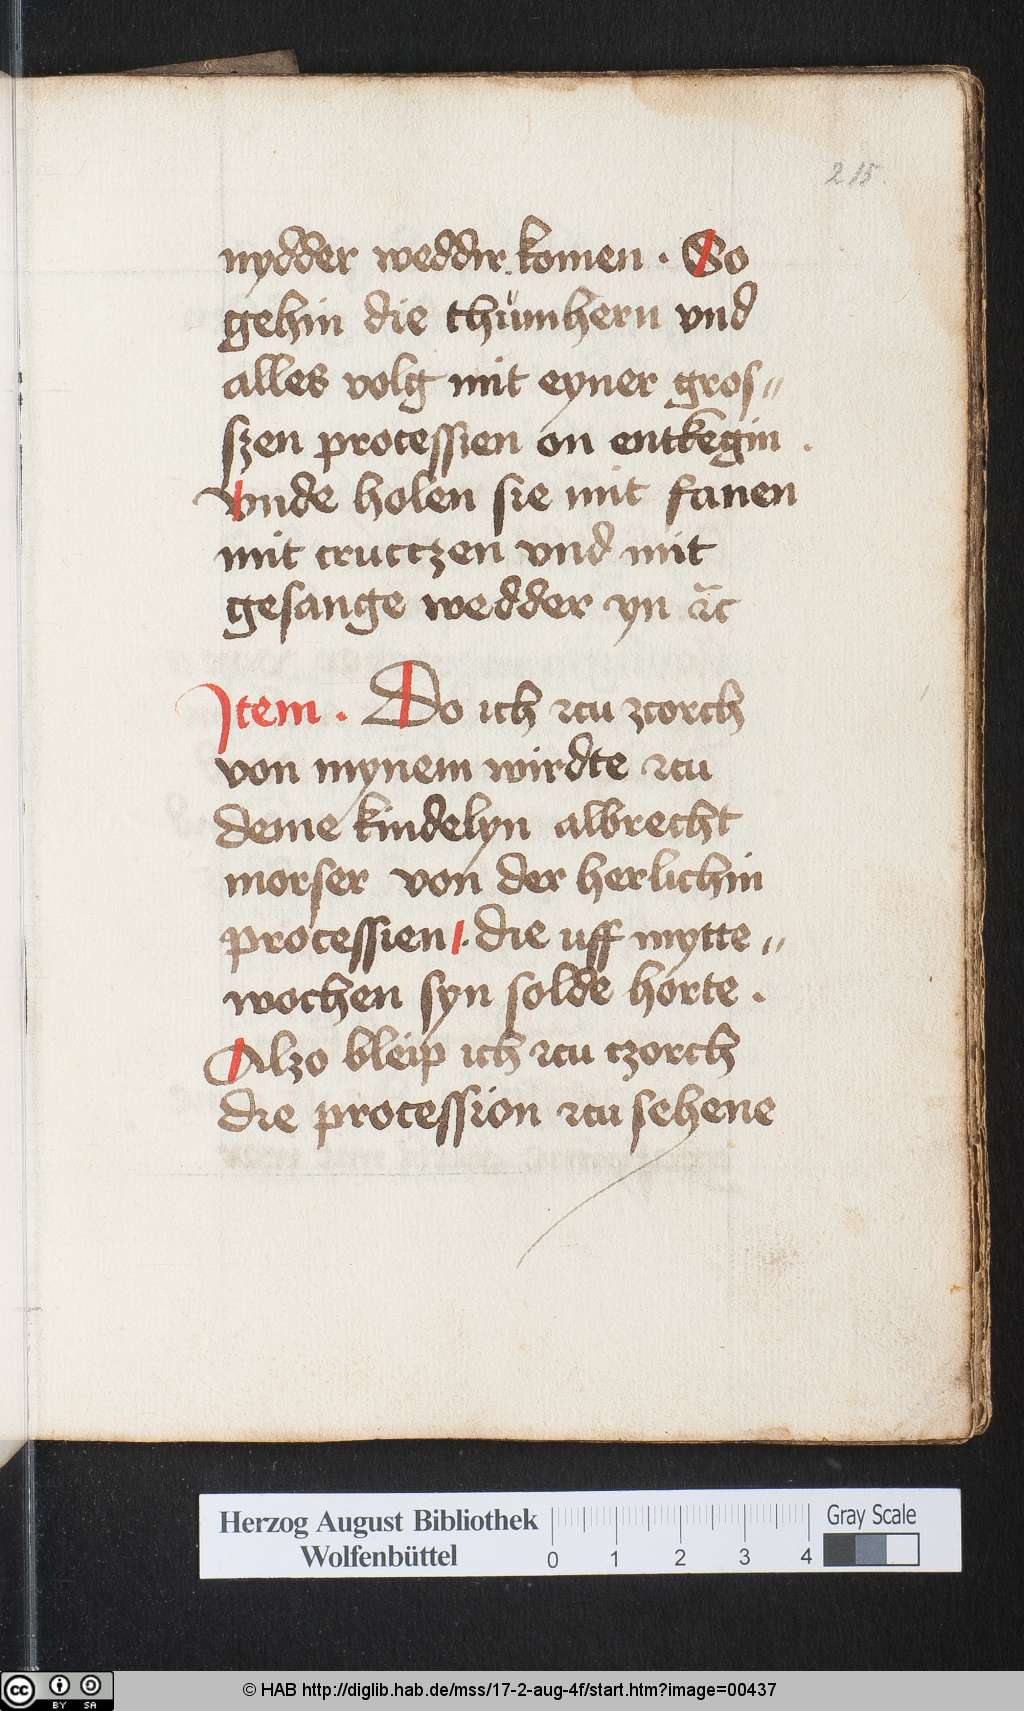 215.
nydder weddir komen · So
gehin die thůmhern vnd
alles volg mit eyner gros„
szen processien on entkegin .
Vnde holen sie mit fanen
mit cructzen vnd mit
gesange wedder yn ꝛc̃
Item . Do ich zcu zcorch
von mynem wirdte zcu
deme kindelyn albrecht
morser von der herlichin
processien . die uff mytte„
wochen syn solde horte .
Alzo bleip ich zcu czorch
die procession zcu sehene
Herzog August Bibliothek
Wolfenbüttel
0 1 2 3 4
Gray Scale
cc BY SA
© HAB http://diglib.hab.de/mss/17-2-aug-4f/start.htm?image=00437